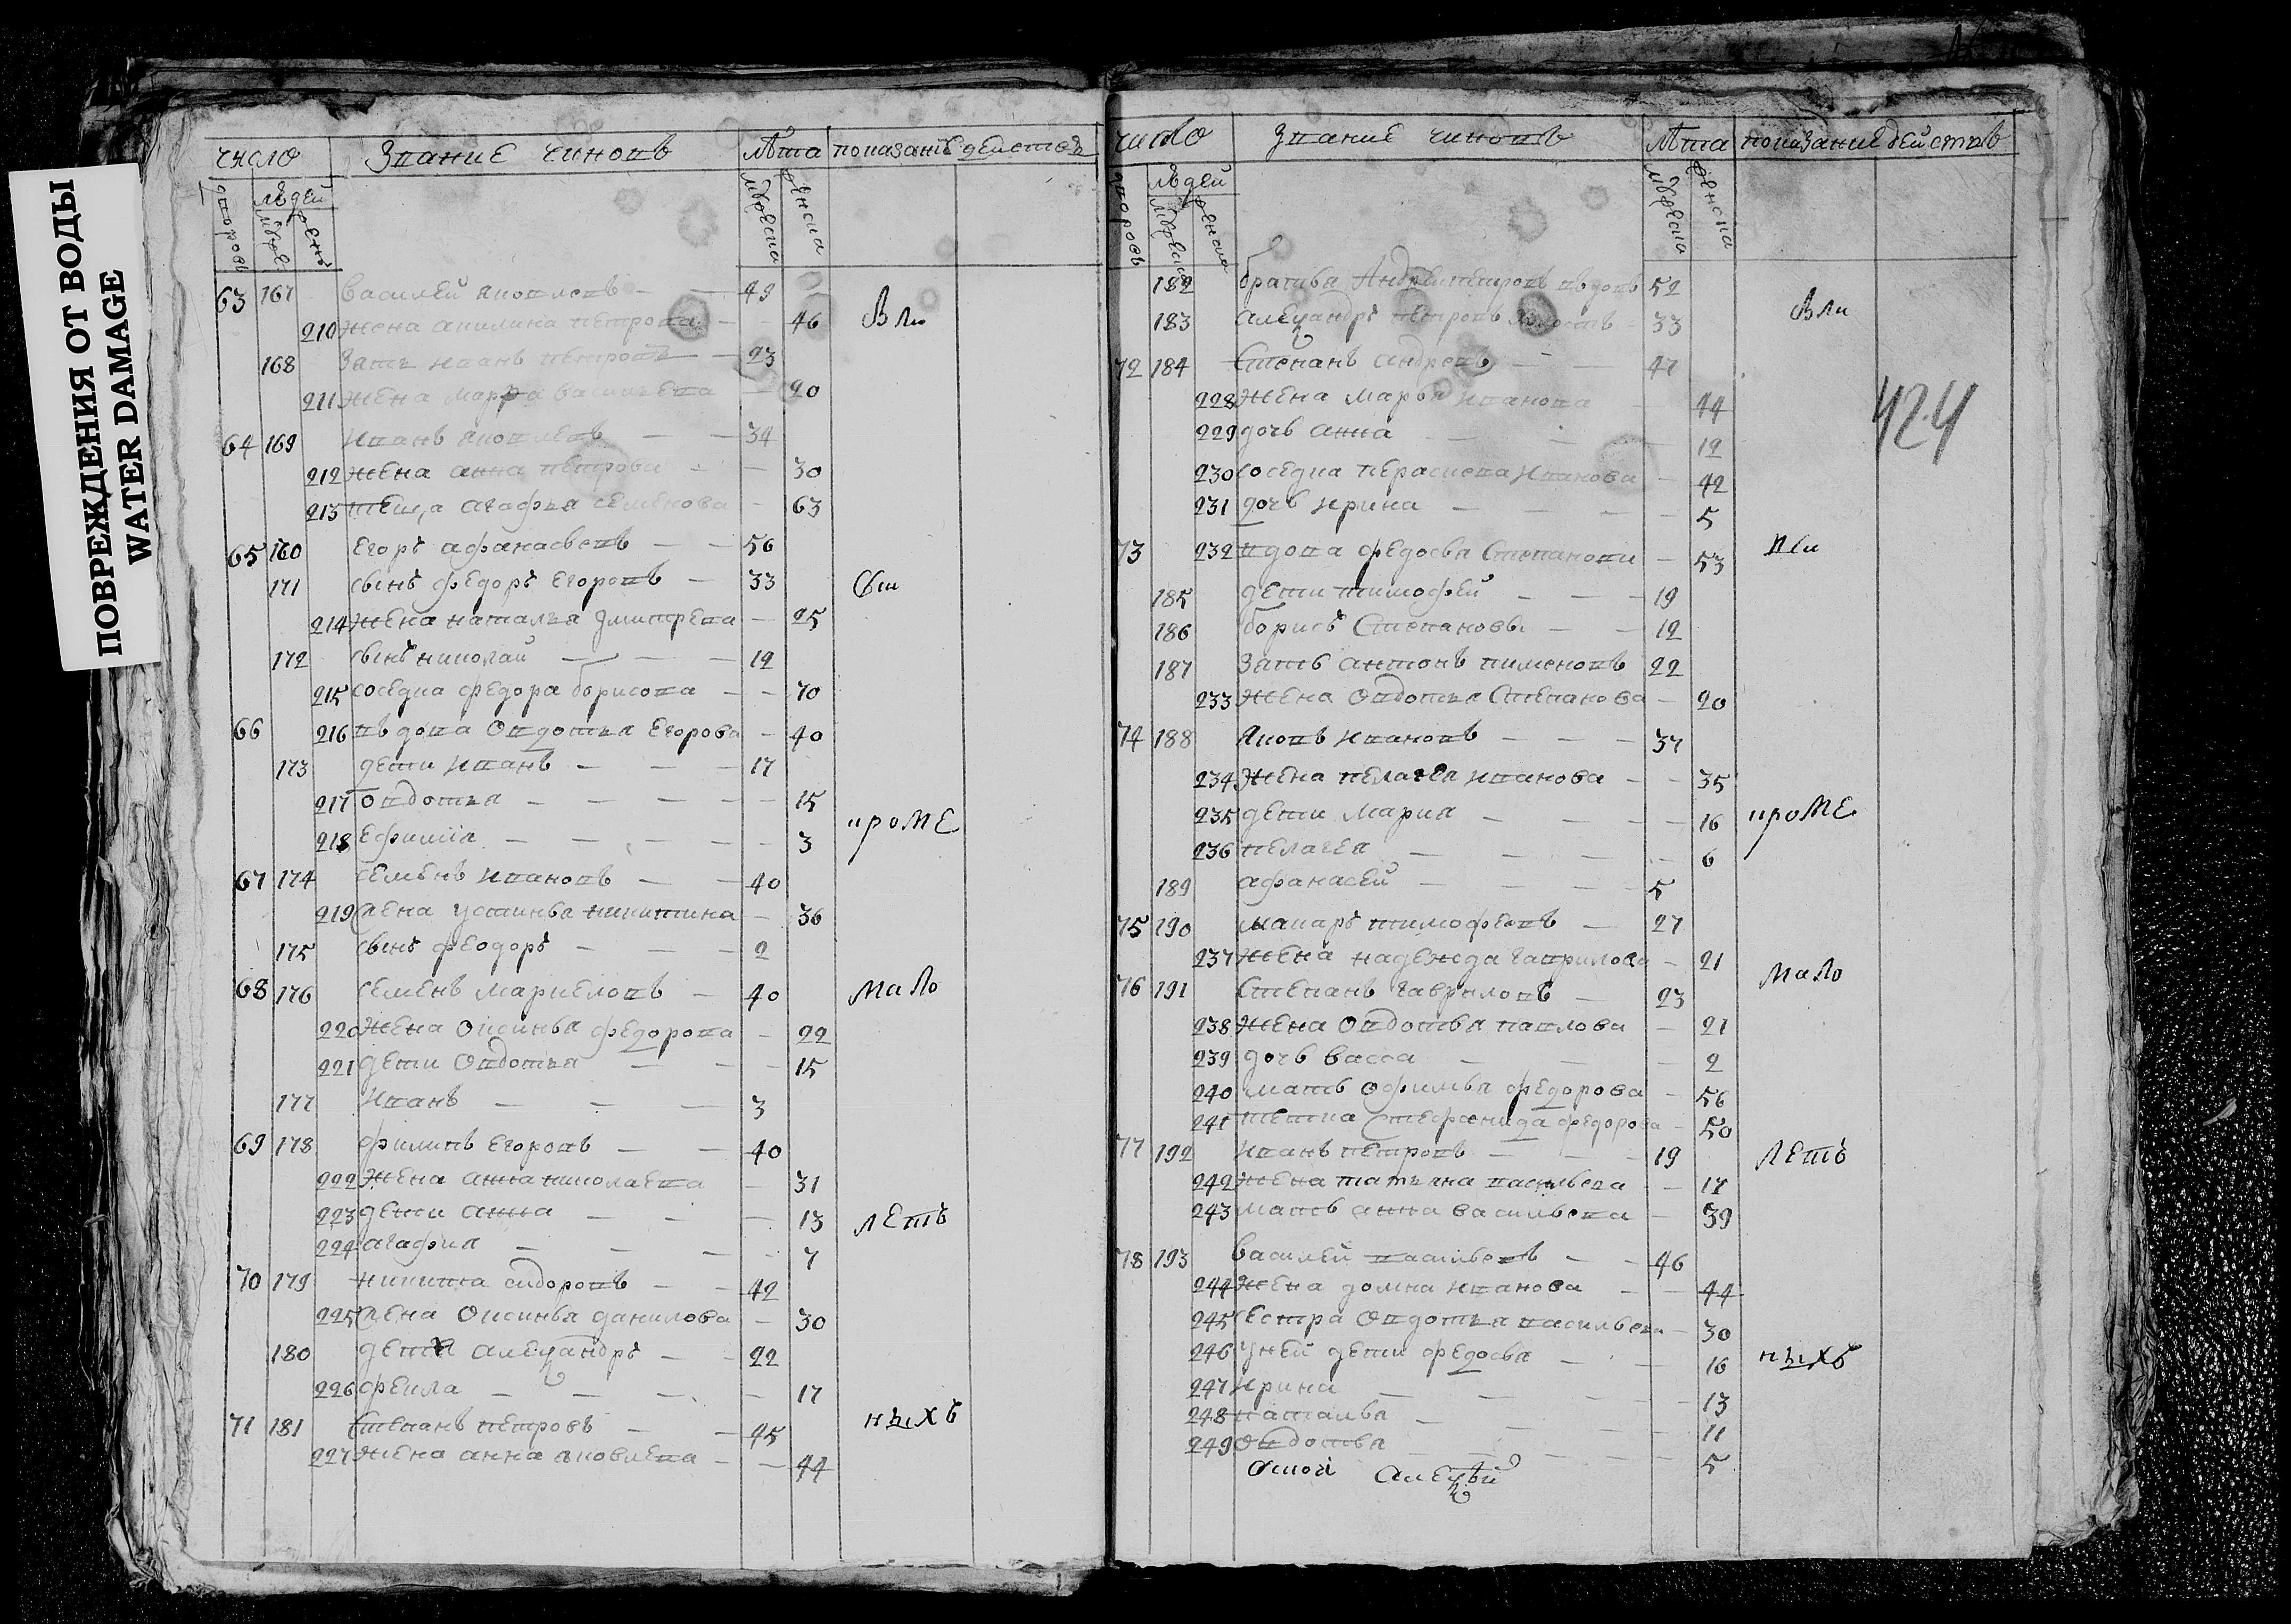 ПОВРЕЖДЕНИЯ ОТ ВОДЫ
WATER DAMAGE
число Звание чиновъ лѣта показание действъ
дворовъ людей мужеска женска
63 167 Василей яковлевъ — 49
210 жена акилина петрова — 46 Вли
168 зять иванъ петровъ — 23
211 жена марфа васильева — 20
64 169 иванъ яковлевъ — 34
212 жена анна петрова — 30
213 теща агафья семенова — 63
65 160 Егоръ афанасьевъ — 56
171 сынъ федоръ Егоровъ — 33
214 жена наталья дмитрева — 25
172 сынъ николай — 12
215 соседка федора борисова — 70
66 216 въдова овдотья Егорова — 40
173 дети иванъ — 17
217 овдотья — 15
кроме
218 Ефимiа — 3
67 174 семенъ ивановъ — 40
219 жена устинья никитина — 36
175 сынъ феодоръ — 2
68 176 семенъ маркеловъ — 40 мало
220 жена оксинья федорова — 22
221 дети овдотья — 15
177 иванъ — 3
69 178 филипъ Егоровъ — 40
222 жена анна николаева — 31
223 дети анна — 13 летъ
224 агафиа — 7
70 179 никита сидоровъ — 42
225 жена оксинья данилова — 30
180 дети алеѯандръ — 22
226 фекла — 17
71 181 степанъ петровъ — 45 ныхъ
227 жена анна яковлева — 44
число Звание чиновъ лѣта показание действъ
дворовъ людей мужеска женска
182 братья Андрей петровъ въдовъ 52
183 алеѯандръ петровъ холостъ — 33 Вли
72 184 Степанъ андреевъ — 47
228 жена марья иванова — 44
424
229 дочь анна — 12
230 соседка перасковья иванова — 42
231 дочь ирина — 5
73 232 вдова федосья Степанова — 53
185 дети тимофей — 19
186 борисъ Степановы — 12
187 зять антонъ пименовъ 22
233 жена овдотья Степанова — 20
74 188 яковъ ивановъ — 37
234 жена пелагея иванова — 35
235 дети мариа — 16 кроме
236 пелагея — 6
189 афанасей — 5
75 190 макаръ тимофеевъ — 27
237 жена надежда гаврилова — 21
76 191 Степанъ гавриловъ — 23 мало
238 жена овдотья павлова — 21
239 дочь васса — 2
240 мать офимья федорова — 56
241 тетка стефанида федорова — 50
77 192 иванъ петровъ — 19 летъ
242 жена татьяна васильева — 17
243 мать анна васильева — 39
78 193 василей васильевъ — 46
244 жена домна иванова — 44
245 сестра овдотья васильева — 30
246 у ней дети федосья — 16 ныхъ
247 ирина — 13
248 наталья — 11
249 овдотья — 5
алеѯѣй